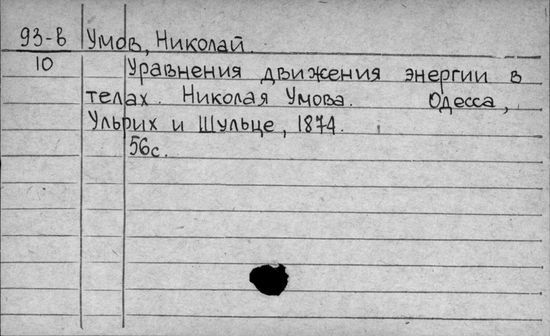 93-в Умов, Николай.
10 Уравнения движения энергии в
телах. Николая Умова. Одесса,
Ульрих и Шульце, 1874.
56с.